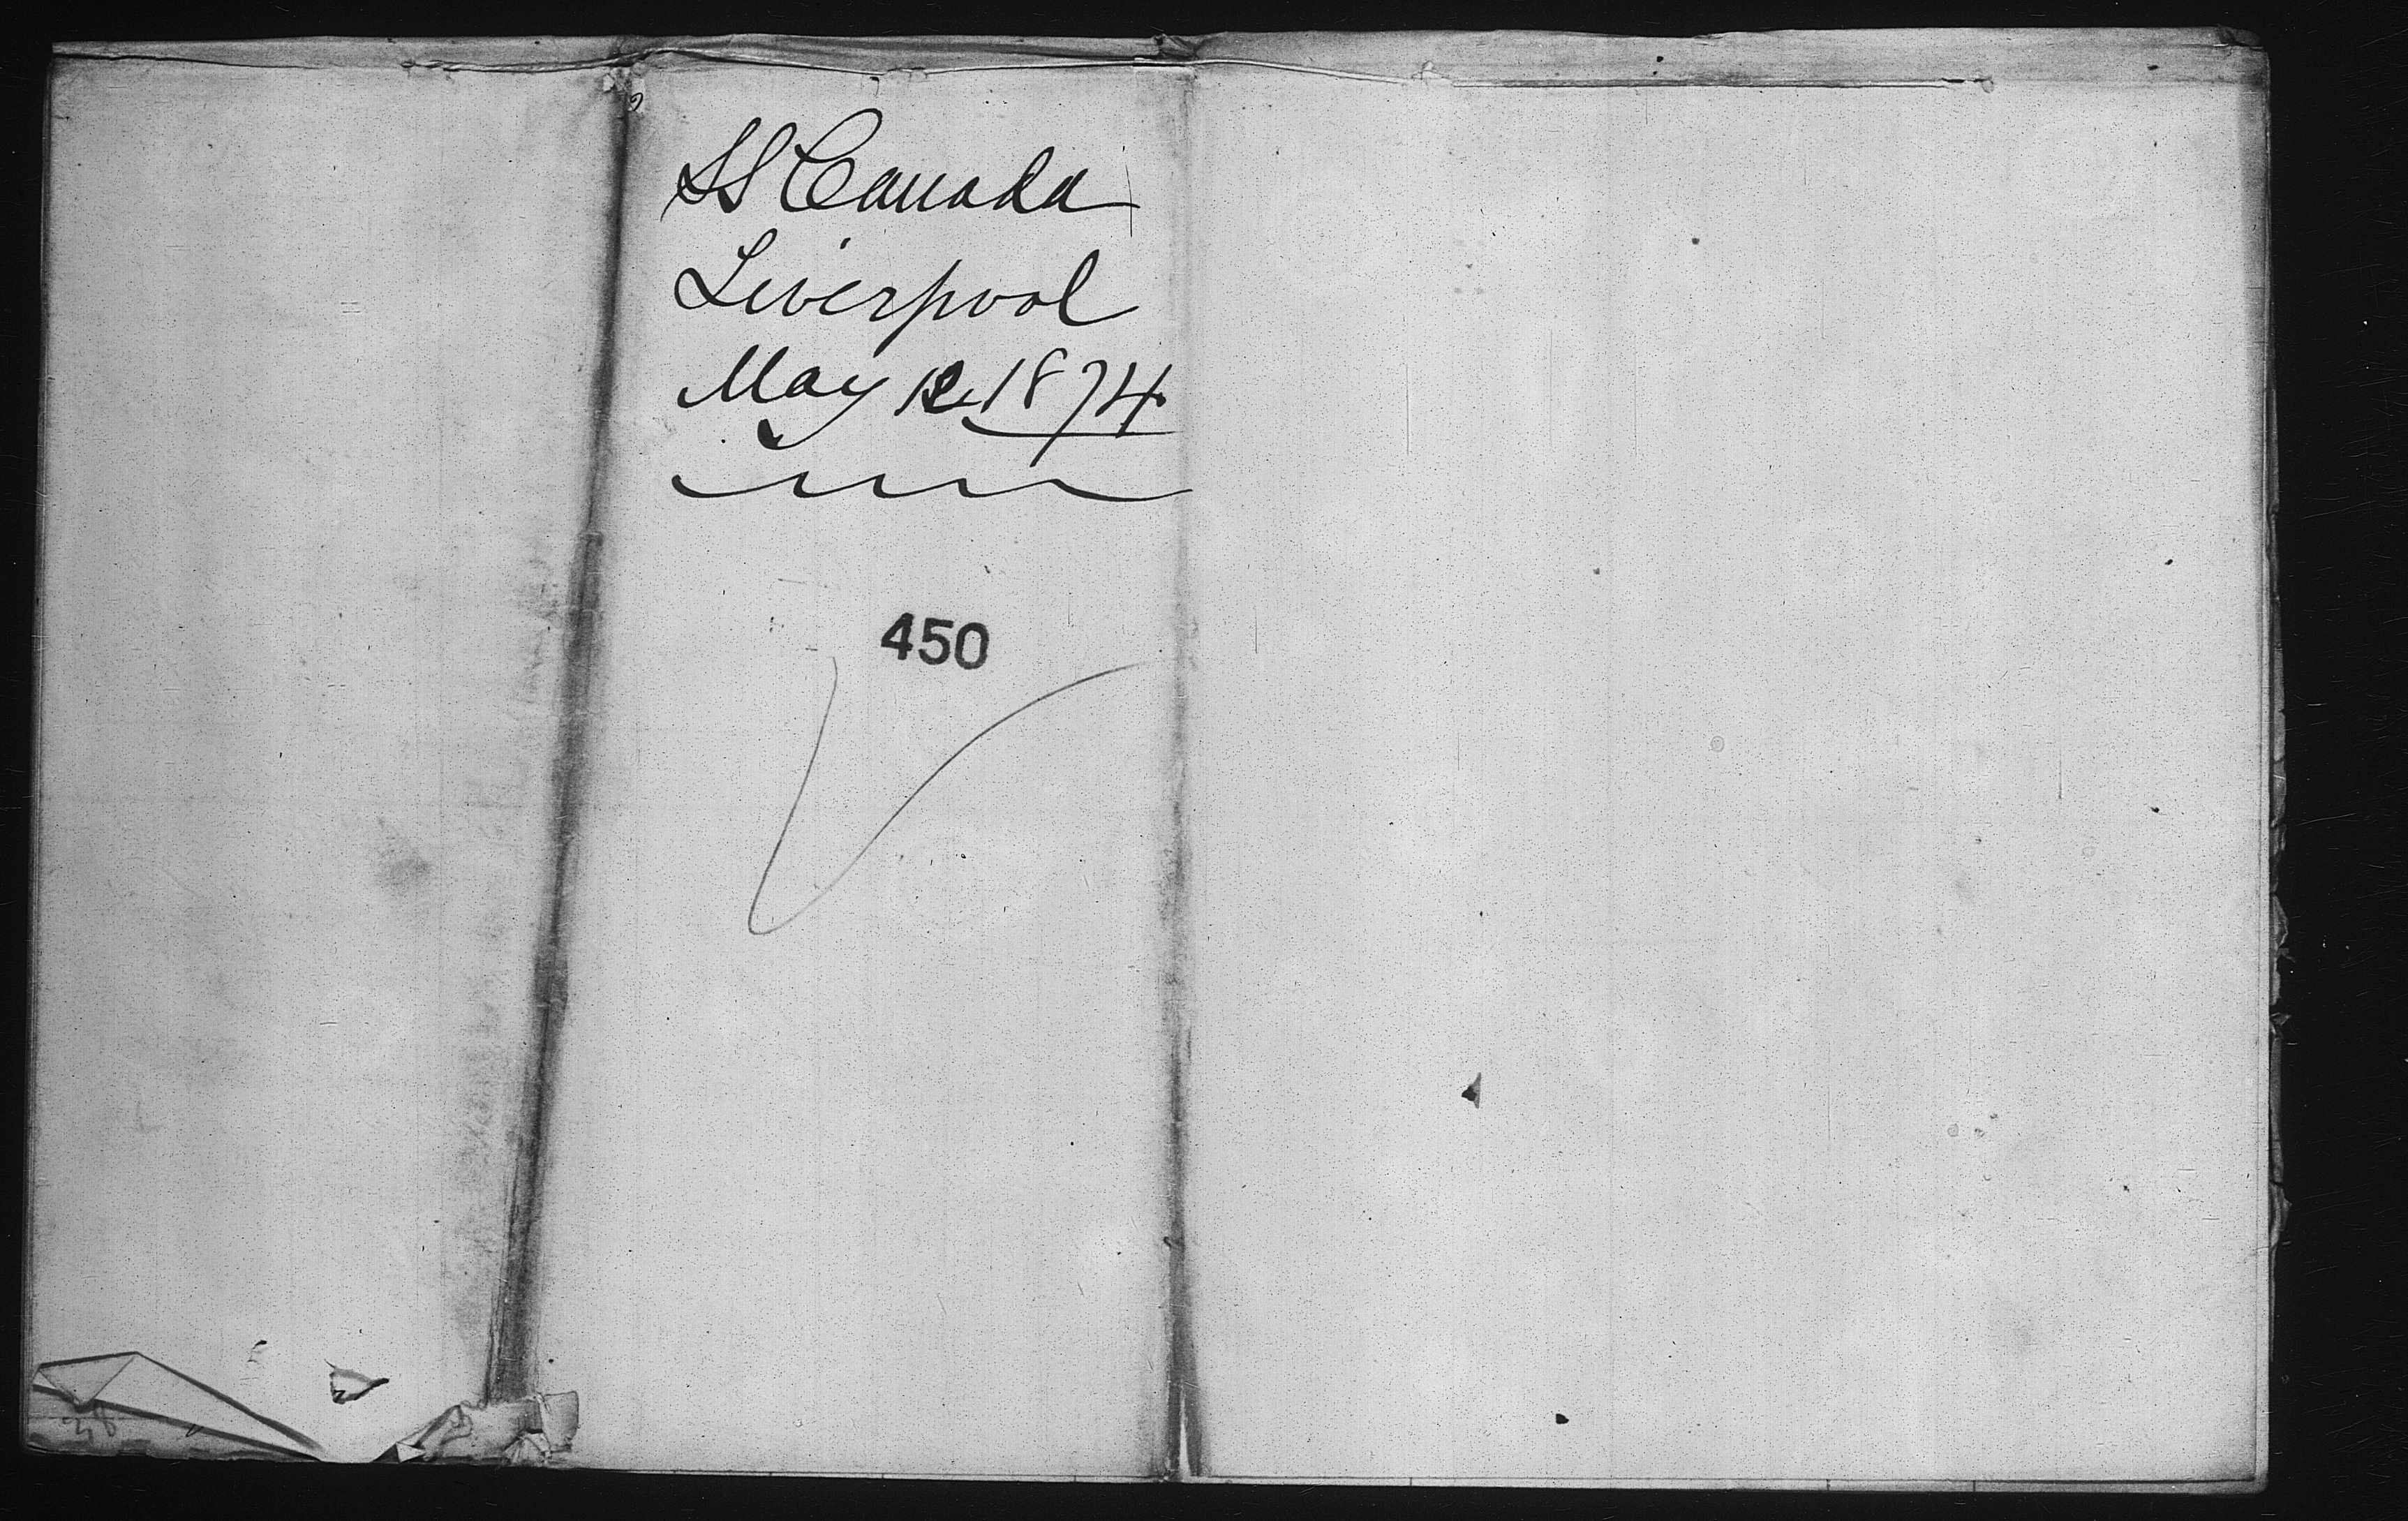 SS Canada
Liverpool
May 12 1874
450
28